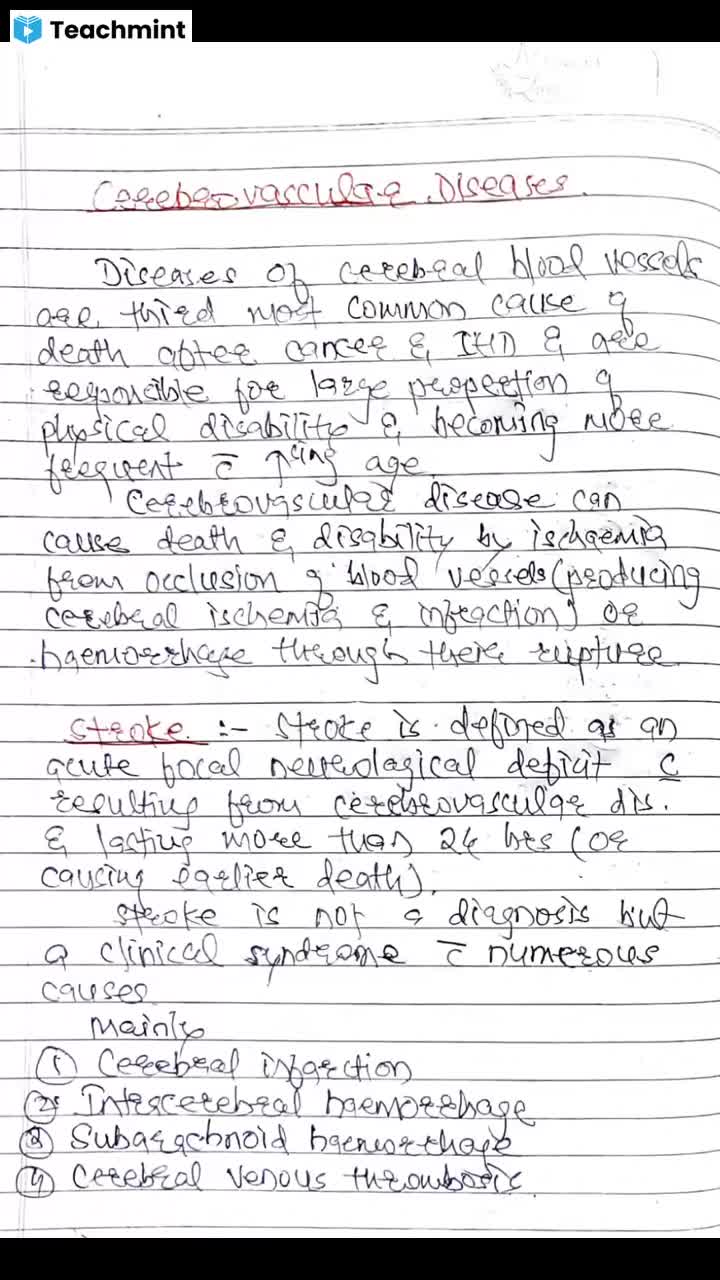 Teachmint
Cerebrovascular Diseases.
Diseases of cerebral blood vessels
are third most common cause of
death after cancer & IHD & are
responcible for large propertion of
physical disability & becoming more
frequent c̄ ↑cing age
Cerebrovascular disease can
cause death & disability by ischaemia
from occlusion of blood vessels (producing
cerebral ischemia & infraction) or
haemorrhage through there rupture
Stroke :- Stroke is defined as an
acute focal neurological deficit c̄
resulting from cerebrovascular dis.
& lasting more than 24 hrs (or
causing earlier death).
Stroke is not a diagnosis but
a clinical syndrome c̄ numerous
causes
Mainly
① Cerebral infarction
② Intracerebral haemorrhage
③ Subarachnoid haemorrhage
④ Cerebral venous thrombosis.